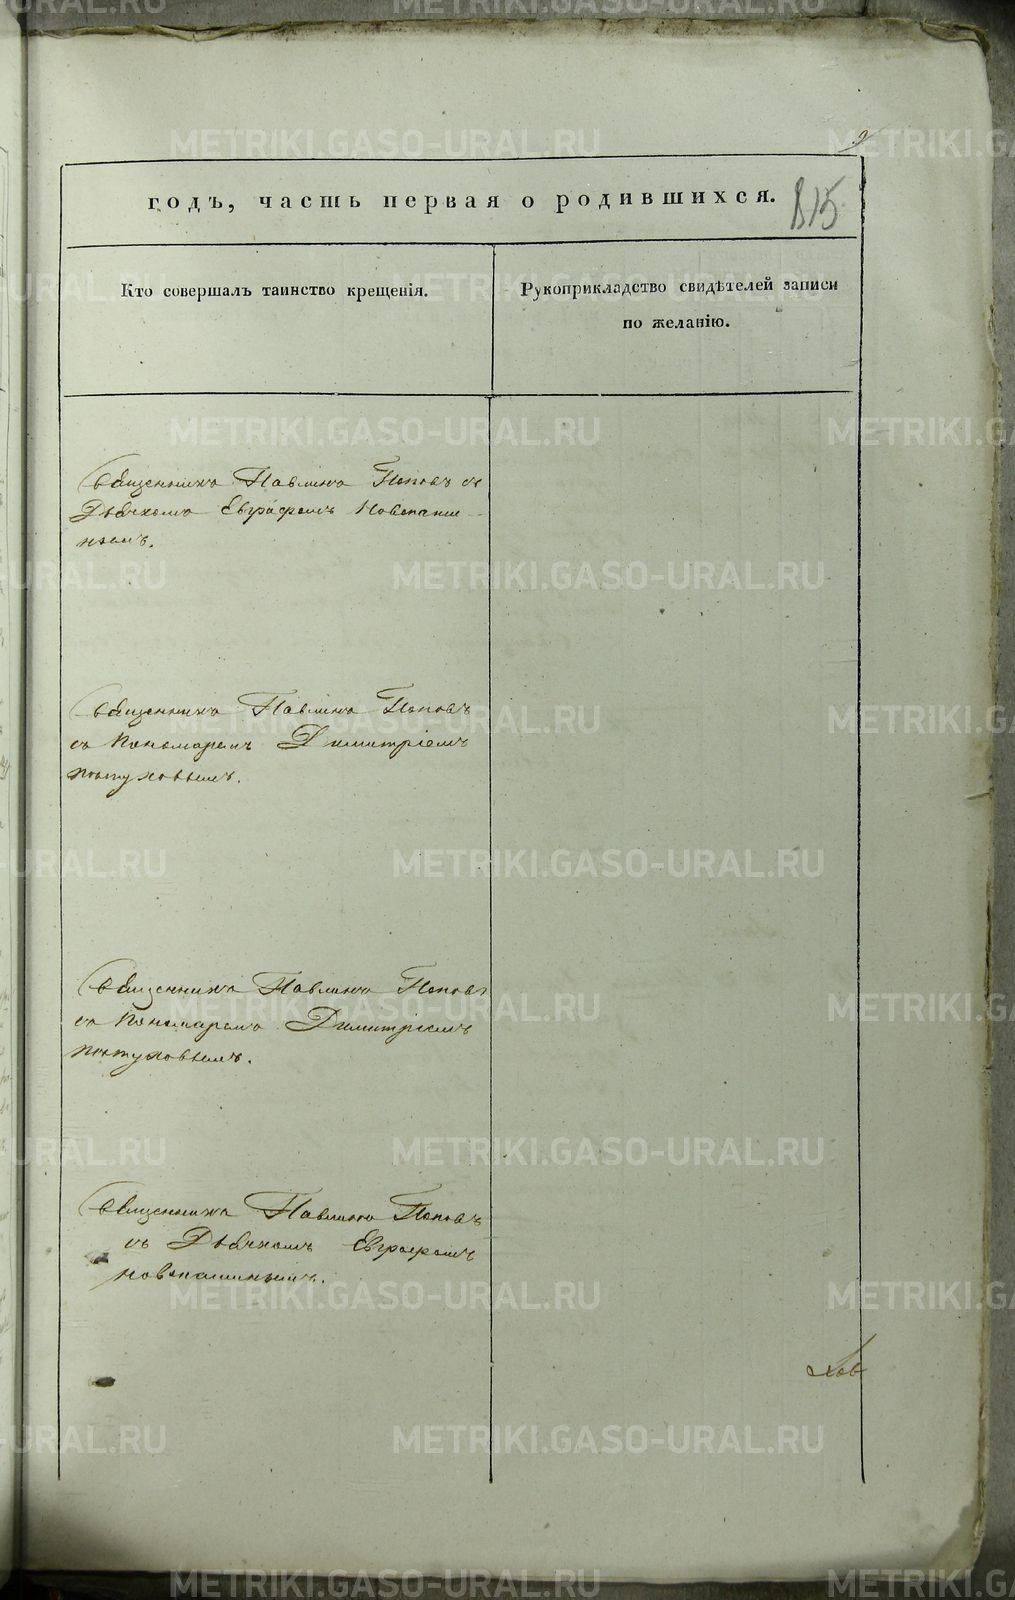 годъ, часть первая о родившихся.
815
Кто совершалъ таинство крещенія.
Рукоприкладство свидѣтелей записи
по желанію.
Священникъ Павлинъ Поповъ съ
Дьячкомъ Евграфомъ Новопаши-
нымъ.
Священникъ Павлинъ Поповъ
съ Пономаремъ Димитріемъ
Пѣтуховымъ.
Священникъ Павлинъ Поповъ
съ Пономаремъ Димитріемъ
Пѣтуховымъ.
Священникъ Павлинъ Поповъ
съ Дьячкомъ Евграфомъ
Новопашинымъ.
METRIKI.GASO-URAL.RU